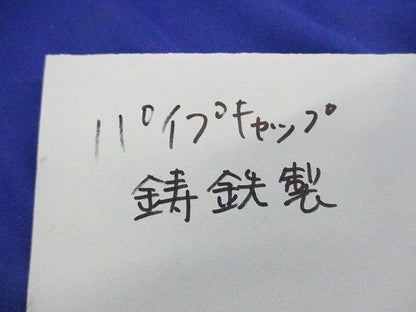 パイプキャップ
鋳鉄製